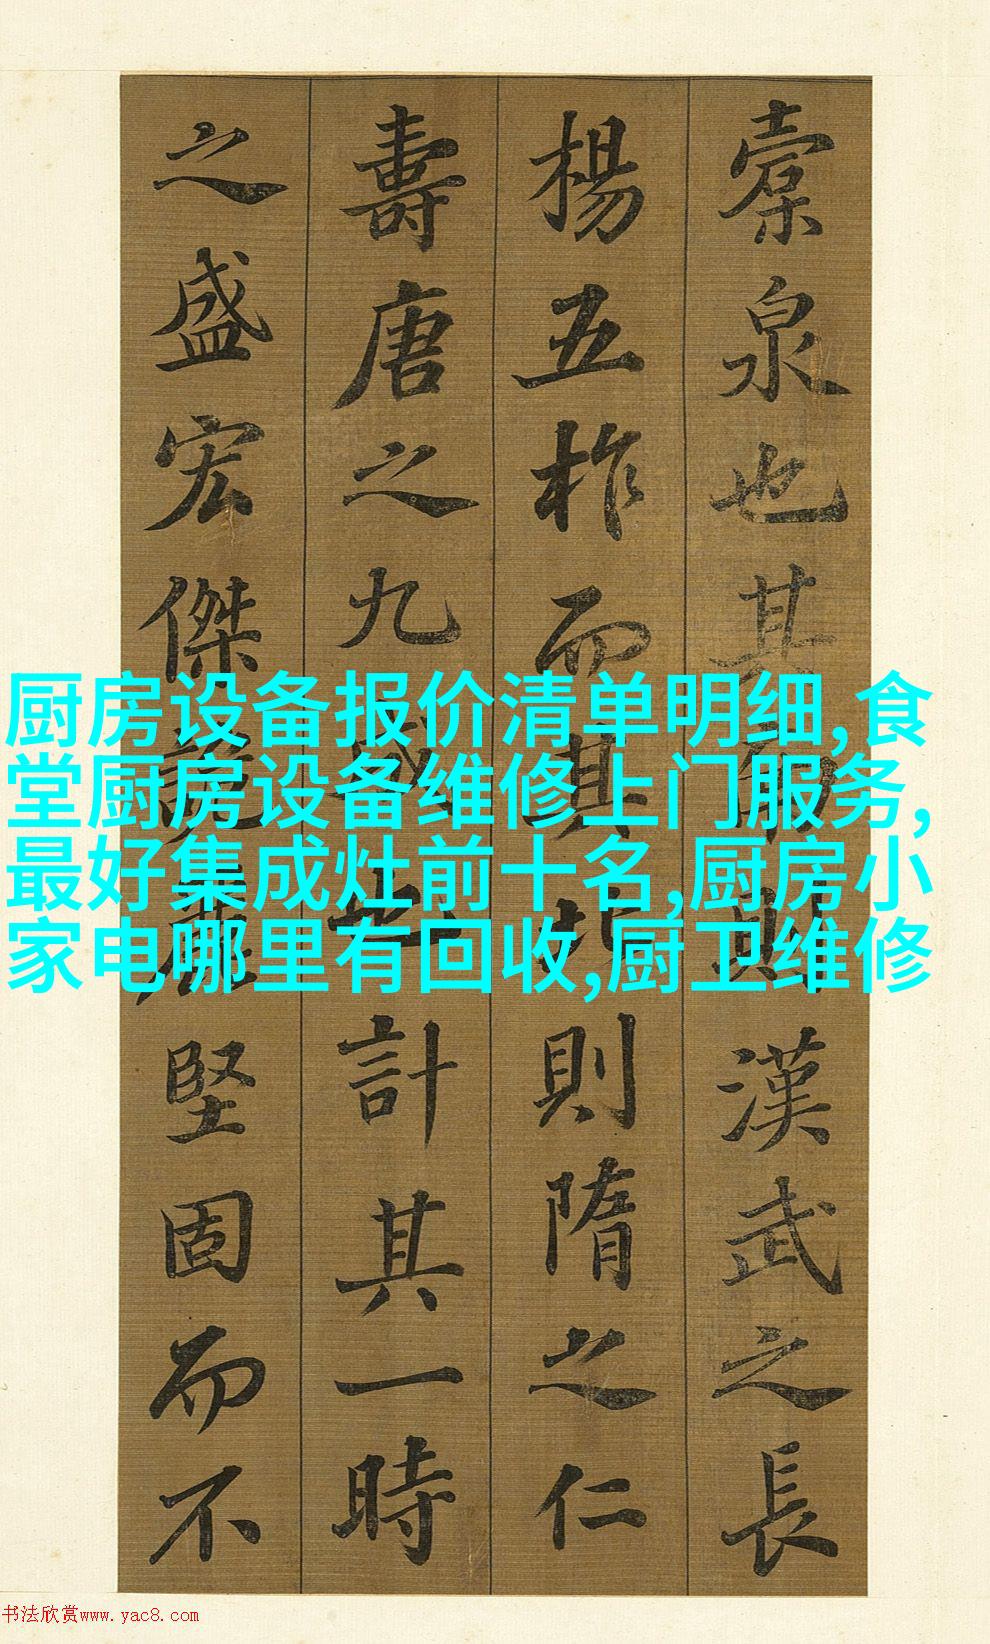 橐泉也其南則漢武之長
楊五柞而其北則隋之仁
壽唐之九成也計其一時
之盛宏傑詭麗堅固而不
厨房设备报价清单明细,食
堂厨房设备维修上门服务,
最好集成灶前十名,厨房小
家电哪里有回收,厨卫维修
书法欣赏www.yac8.com